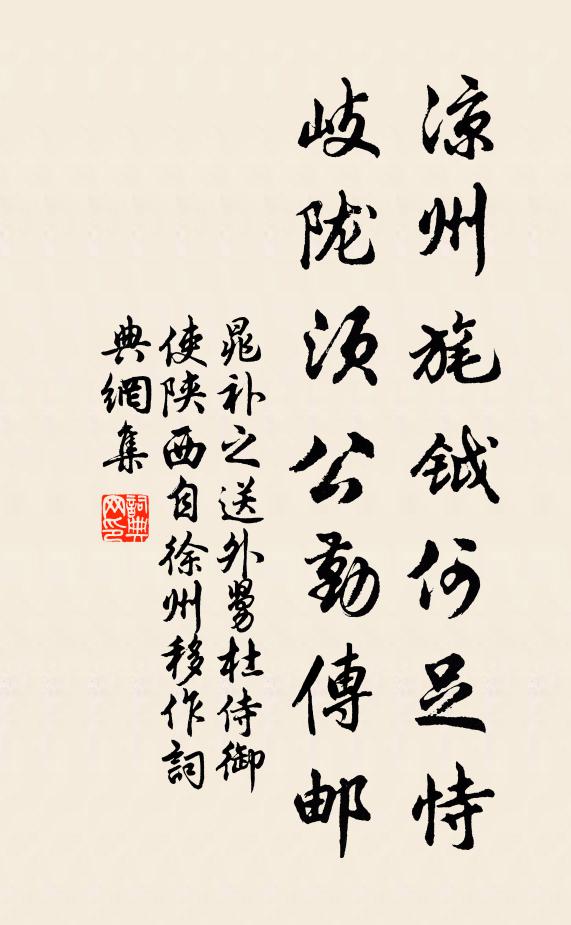 涼州旄鉞何足恃
岐陇須公勤傳邮
晁补之送外舅杜侍御
使陕西自徐州移作詞
典網集
詞典
网印